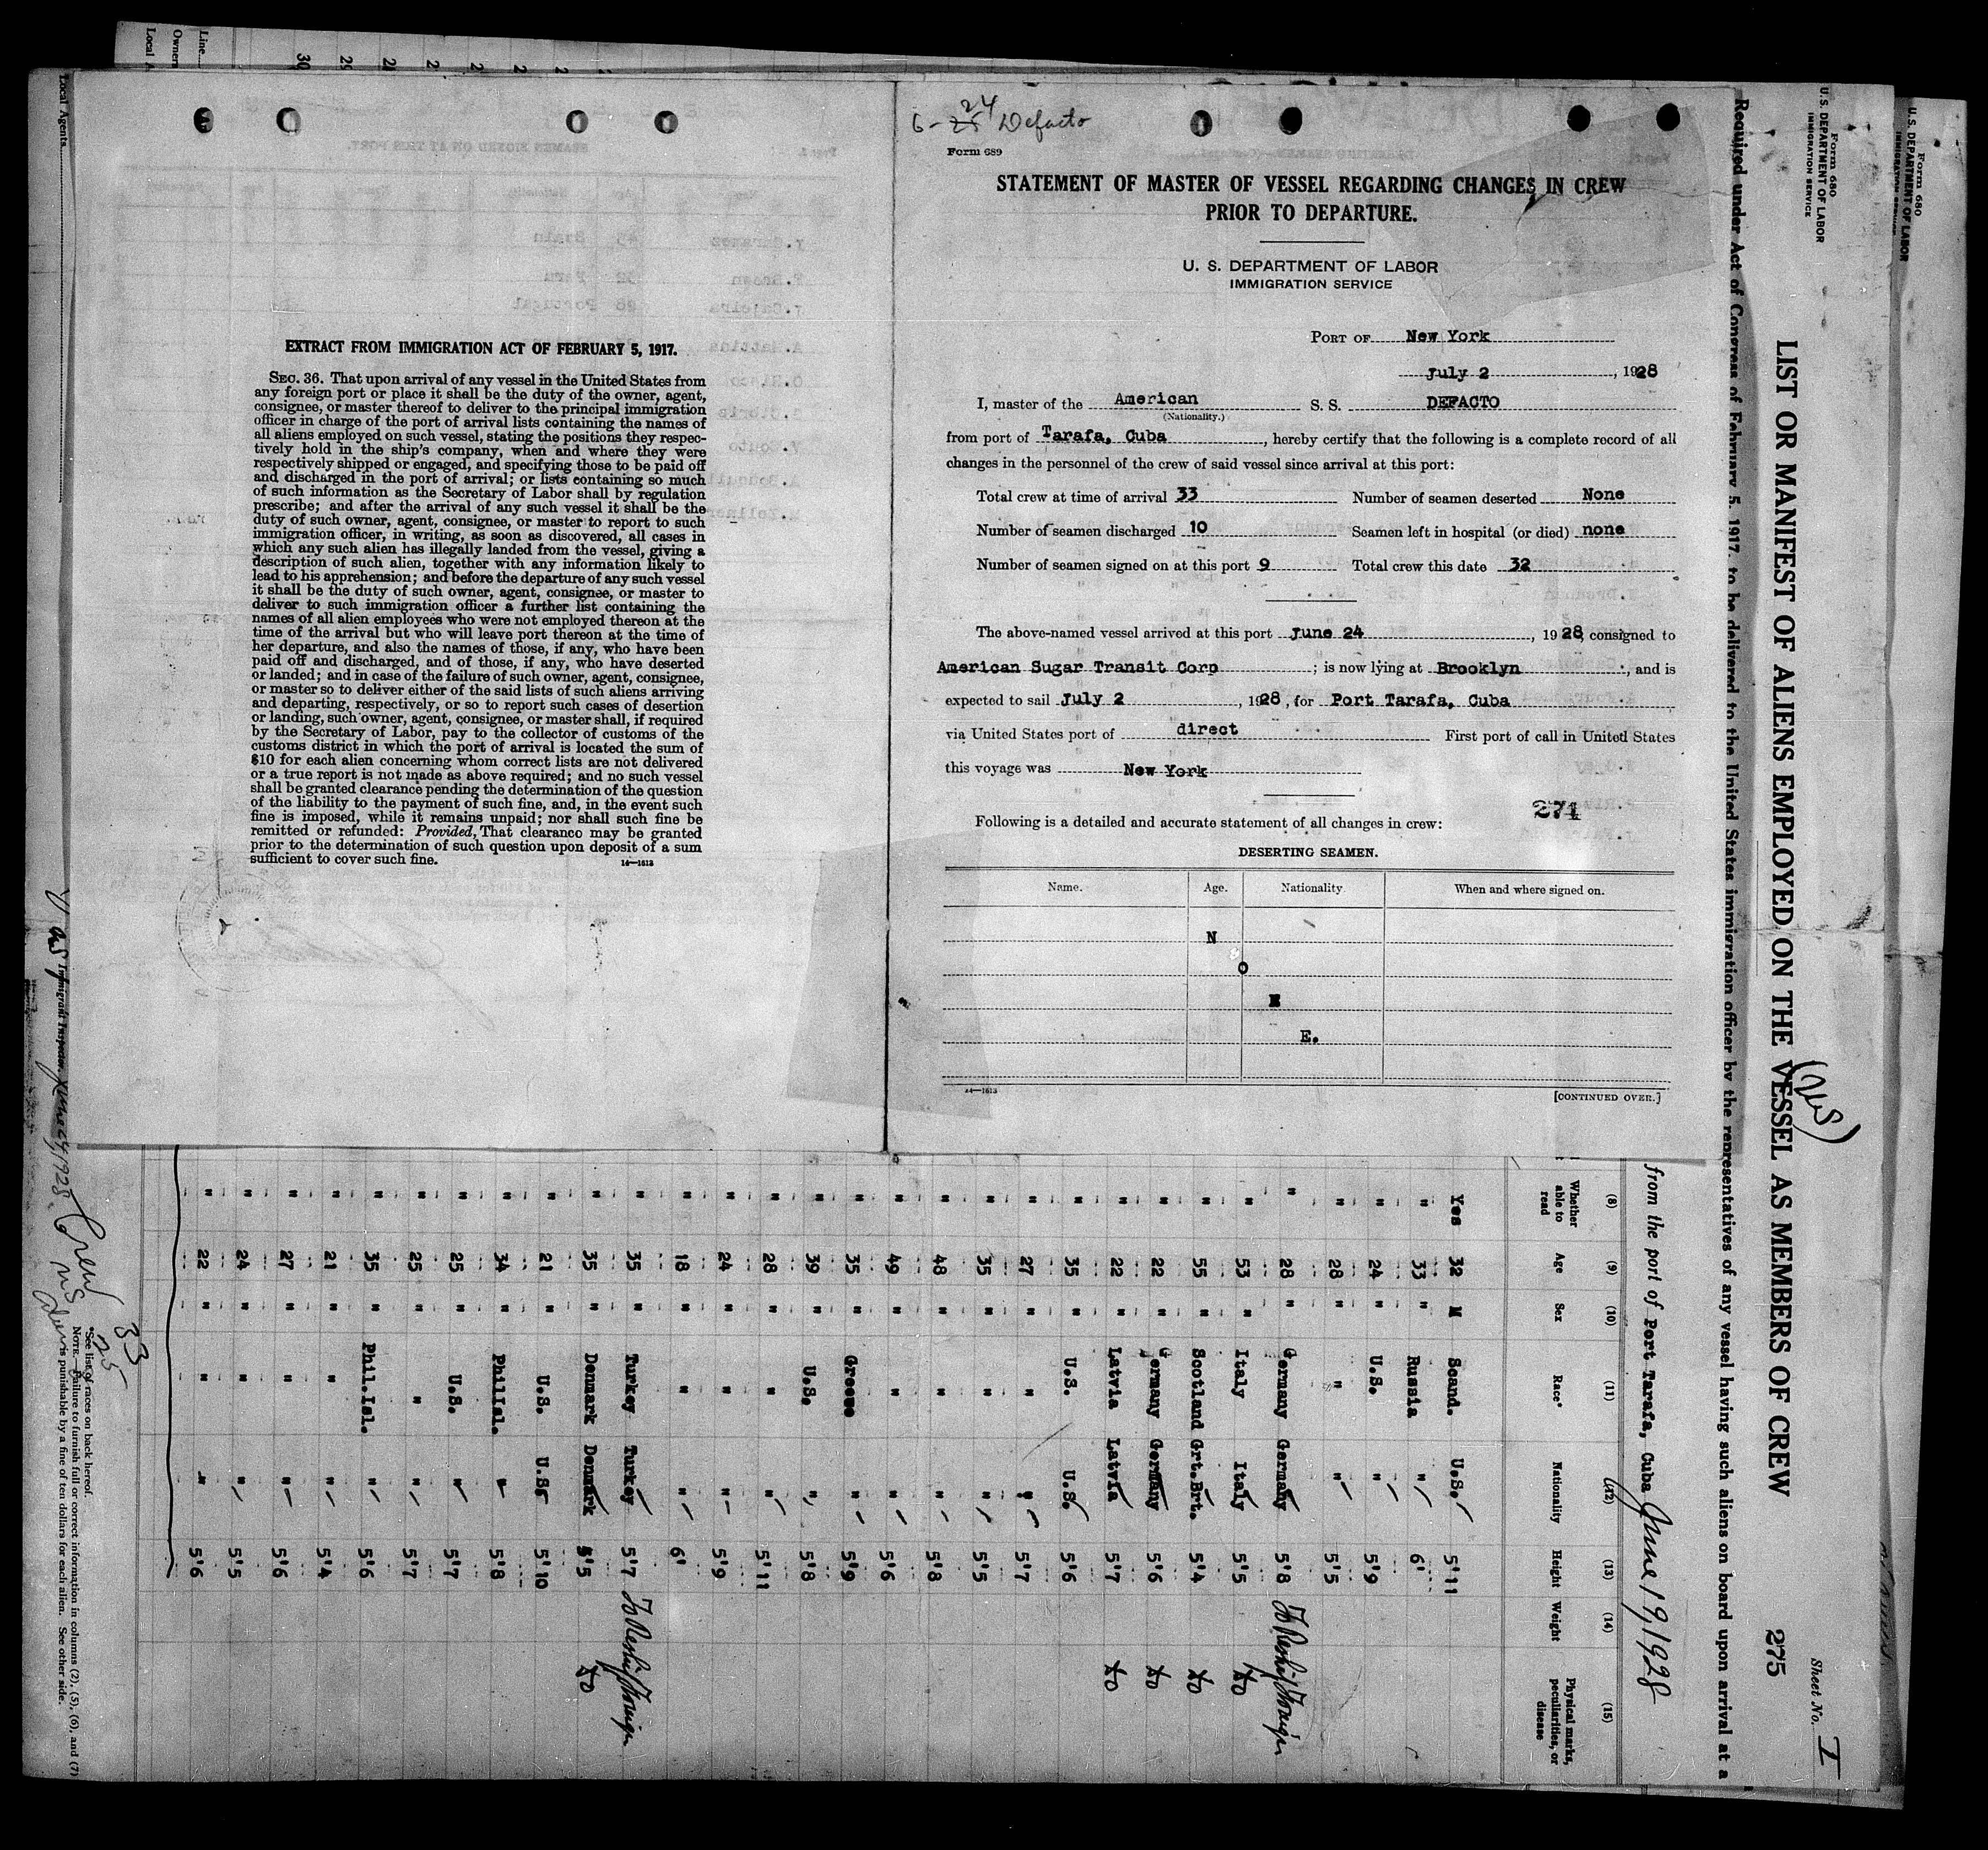 EXTRACT FROM IMMIGRATION ACT OF FEBRUARY 5, 1917.
SEC. 36. That upon arrival of any vessel in the United States from
any foreign port or place it shall be the duty of the owner, agent,
consignee, or master thereof to deliver to the principal immigration
officer in charge of the port of arrival lists containing the names of
all aliens employed on such vessel, stating the positions they respec-
tively hold in the ship's company, when and where they were
respectively shipped or engaged, and specifying those to be paid off
and discharged in the port of arrival; or lists containing so much
of such information as the Secretary of Labor shall by regulation
prescribe; and after the arrival of any such vessel it shall be the
duty of such owner, agent, consignee, or master to report to such
immigration officer, in writing, as soon as discovered, all cases in
which any such alien has illegally landed from the vessel, giving a
description of such alien, together with any information likely to
lead to his apprehension; and before the departure of any such vessel
it shall be the duty of such owner, agent, consignee, or master to
deliver to such immigration officer a further list containing the
names of all alien employees who were not employed thereon at the
time of the arrival but who will leave port thereon at the time of
her departure, and also the names of those, if any, who have been
paid off and discharged, and of those, if any, who have deserted
or landed; and in case of the failure of such owner, agent, consignee,
or master so to deliver either of the said lists of such aliens arriving
and departing, respectively, or so to report such cases of desertion
or landing, such owner, agent, consignee, or master shall, if required
by the Secretary of Labor, pay to the collector of customs of the
customs district in which the port of arrival is located the sum of
$10 for each alien concerning whom correct lists are not delivered
or a true report is not made as above required; and no such vessel
shall be granted clearance pending the determination of the question
of the liability to the payment of such fine, and, in the event such
fine is imposed, while it remains unpaid; nor shall such fine be
remitted or refunded: Provided, That clearance may be granted
prior to the determination of such question upon deposit of a sum
sufficient to cover such fine.
14—1613
24
6-25 Defacto
Form 689
STATEMENT OF MASTER OF VESSEL REGARDING CHANGES IN CREW
PRIOR TO DEPARTURE.
U. S. DEPARTMENT OF LABOR
IMMIGRATION SERVICE
PORT OF New York
July 2, 1928
I, master of the American S. S. DEFACTO
(Nationality.)
from port of Tarafa, Cuba, hereby certify that the following is a complete record of all
changes in the personnel of the crew of said vessel since arrival at this port:
Total crew at time of arrival 33 Number of seamen deserted None
Number of seamen discharged 10 Seamen left in hospital (or died) none
Number of seamen signed on at this port 9 Total crew this date 32
The above-named vessel arrived at this port June 24, 1928, consigned to
American Sugar Transit Corp; is now lying at Brooklyn, and is
expected to sail July 2, 1928, for Port Tarafa, Cuba
via United States port of direct First port of call in United States
this voyage was New York
274
Following is a detailed and accurate statement of all changes in crew:
DESERTING SEAMEN.
Name. Age. Nationality When and where signed on.
N
O
N
E.
14—1613
[CONTINUED OVER.]
Form 680
U. S. DEPARTMENT OF LABOR
IMMIGRATION SERVICE
Form 680
U. S. DEPARTMENT OF LABOR
IMMIGRATION SERVICE
Sheet No. I
LIST OR MANIFEST OF ALIENS EMPLOYED ON THE VESSEL AS MEMBERS OF CREW 275
Required under Act of Congress of February 5, 1917, to be delivered to the United States immigration officer by the representatives of any vessel having such aliens on board upon arrival at a
from the port of Port Tarafa, Cuba June 19, 1928
(8) (9) (10) (11) (12) (13) (14) (15)
Whether able to read Age Sex Race* Nationality Height Weight Physical marks, peculiarities, or disease
Yes 32 M Scand. U.S. 5'11
" 33 " Russia " 6'
" 24 " U.S. " 5'9
" 28 " " " 5'5
" 28 " Germany Germany 5'8 To Reship Foreign
" 53 " Italy Italy 5'5 XO
" 55 " Scotland Grt.Brt. 5'4 XO
" 22 " Germany Germany 5'6 XO
" 22 " Latvia Latvia 5'7 XO
" 35 " U.S. U.S. 5'6
" 27 " " " 5'7
" 35 " " " 5'5
" 48 " " " 5'8
" 49 " " " 5'6
" 35 " Greece " 5'9
" 39 " U.S. " 5'8
" 28 " " " 5'11
" 24 " " " 5'9
" 18 " " " 6'
" 35 " Turkey Turkey 5'7 To Reship Foreign
" 35 " Denmark Denmark 5'5 XO
" 21 " U.S. U.S. 5'10
" 34 " PhilIsl. " 5'8
" 25 " U.S. " 5'7
" 25 " " " 5'7
" 35 " Phil.Isl. " 5'6
" 21 " " " 5'4
" 27 " " " 5'6
" 24 " " " 5'5
" 22 " " " 5'6
33
Crew 25
*See list of races on back hereof.
NOTE.—Failure to furnish full or correct information in columns (2), (5), (6), and (7)
is punishable by a fine of ten dollars for each alien. See other side.
Immigrant Inspector. June 24, 1928
Local Agents
Line
Owners